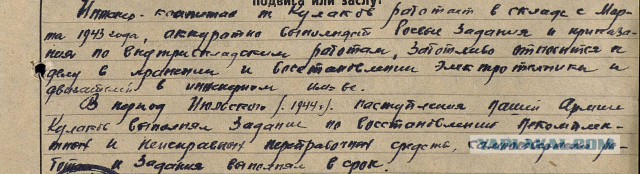 подвига или заслуг
Инженер-капитан т. Кулаков работает в складе с Мар-
та 1943 года, аккуратно выполняет боевые задания и приказа-
ния по внутрискладским работам, заботливо относится к
делу в хранении и восстановлении электротехники и
двигателей в инженерном им-ве.
В период Июльского (1944г.) наступления нашей Армии
Кулаков выполнял задание по восстановлению некомплек-
тных и неисправных переправочных средств, самоотверженно ра-
ботал и задания выполнял в срок.